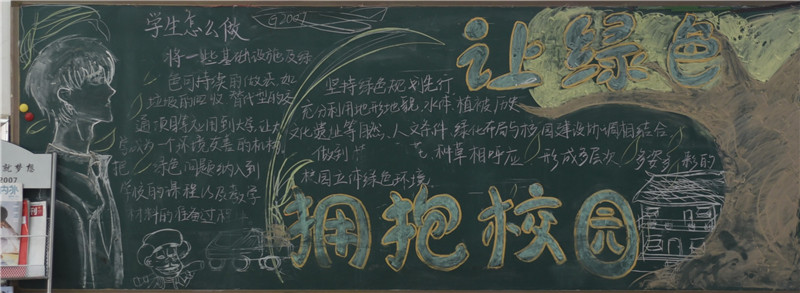 学生怎么做
将一些基础设施及绿
色可持续的做法,如
垃圾的回收 替代型的交
通项目等,让大
一个环境友善的机构,
把 绿色问题纳入到
学校的课程以及教学
材料的准备过程
2007
坚持绿色规划先行
充分利用地形地貌、水体、植被、历史
文化遗址等自然、人文条件,绿化布局与校园建设协调相结合,
做到 花、树草相呼应 形成多层次、多姿多彩的
校园立体绿色环境
让绿色
拥抱校园
就梦想
2007